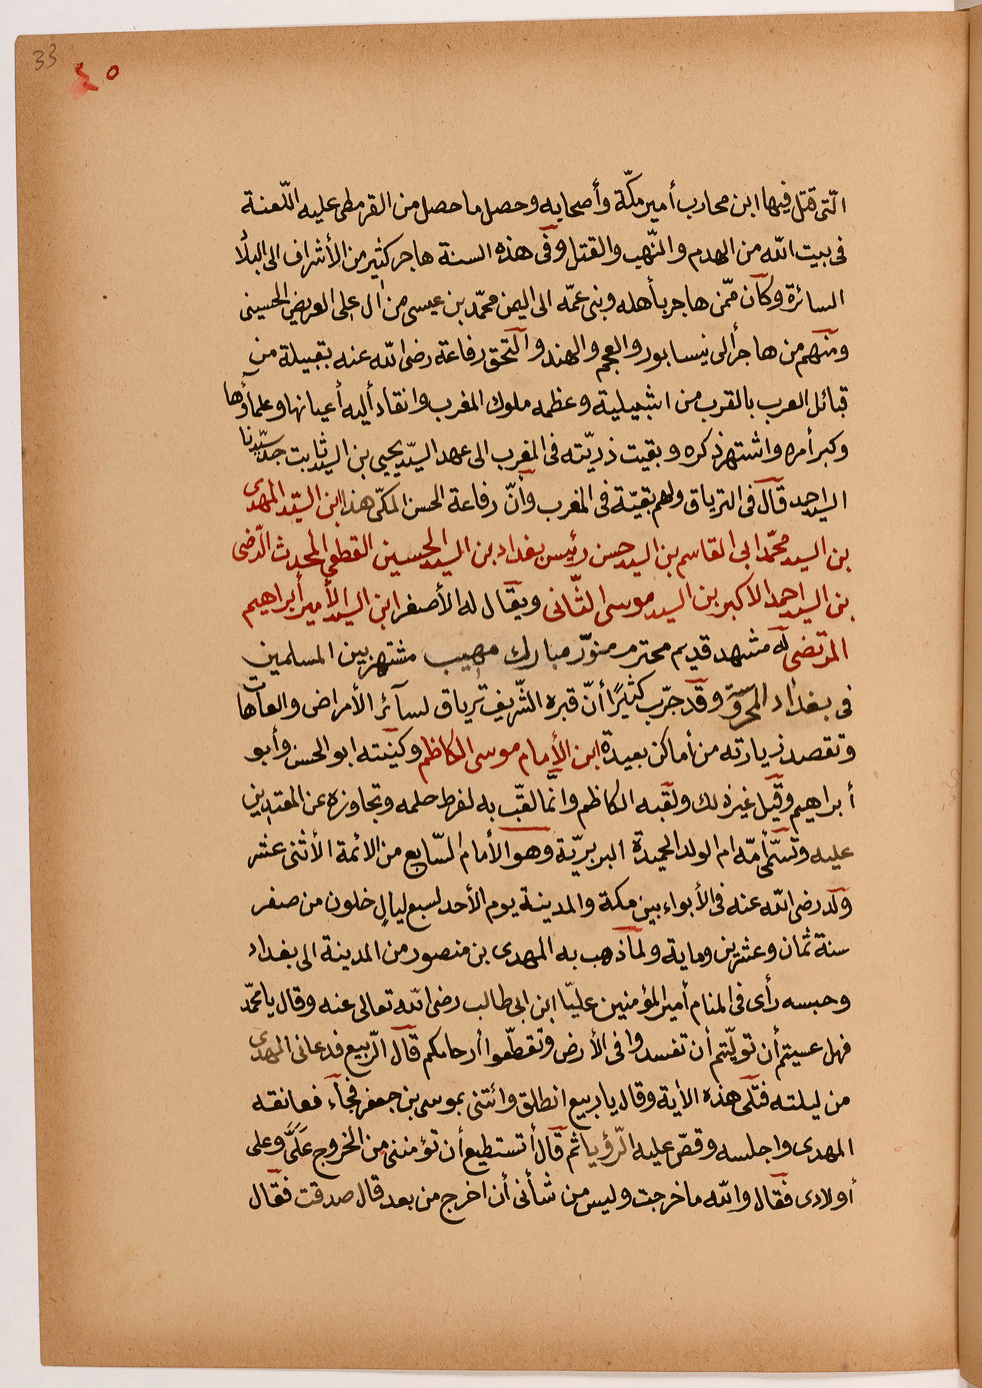 33
٤٥
الّتى قتل فيها ابن محارب أمير مكّة وأصحابه وحصل ما حصل من القرمطى عليه اللّعنة
فى بيت اللّه من الهدم والنّهب والقتل وفى هذه السنة هاجر كثير من الأشراف الى البلأ
السائرة وكان ممّن هاجر بأهله وبنى عمّه الى اليمن محمّد بن عيسى من ال على العريضى الحسينى
ومنهم من هاجر ألى نيسابور والعجم والهند والتحق رفاعة رضى اللّه عنه بقبيلة من
قبائل العرب بالقرب من اشبيلية وعظمه ملوك المغرب وانقاد أليه أعيانها وعلماؤها
وكبر أمره واشتهر ذكره وبقيت ذريّته فى المغرب الى عهد السيّد يحيى بن السيد ثابت جدّ سيّدنا
السيد احمد قال فى الترياق ولهم بقيّة فى المغرب وأنّ رفاعة الحسن المكّى هذا ابن السيّد المهدى
بن السيد محمّد ابى القاسم بن السيد حسن رئيس بغداد بن السيد الحسين القطعى المحدث الرّضى
بن السيد احمد الاكبر بن السيد موسى الثّانى ويقال له الأصغر ابن السيد الأمير أبراهيم
المرتضى له مشهد قديم محترم منوّر مبارك مهيب مشتهر بين المسلمين
فى بغداد المحروسة وقد جرّب كثيرًا أنّ قبره الشّريف ترياق لسآئر الأمراض والعاهات
وتقصد زيارته من أماكن بعيدة ابن الأمام موسى الكاظم وكنيته ابو الحسن وأبو
أبراهيم وقيل غير ذلك ولقبه الكاظم وانّما لقّب به لفرط حلمه وتجاوزه عن المعتدين
عليه وتسمّى أمّه ام الولد الحميدة البربريّة وهو الأمام السّابع من الأئمة الأثنى عشر
ولد رضى اللّه عنه فى الأبواء بين مكة والمدينة يوم الأحد لسبع ليالٍ خلون من صفر
سنة ثمان وعشرين وماية ولمّا ذهب به المهدى بن منصور من المدينة الى بغداد
وحبسه رأى فى المنام أمير المؤمنين عليّا ابن ابى طالب رضى اللّه تعالى عنه وقال يا محمّد
فهل عسيتم أن تولّيتم أن تفسدوا فى الأرض وتقطّعوا أرحامكم قال الرّبيع فدعانى المهدى
من ليلته فتلى هذه الأية وقال يا ربيع انطلق وائتنى بموسى بن جعفر فجآء فعانقه
المهدى واجلسه وقصّ عليه الرّؤيا ثم قال أتستطيع أن تؤمننى من الخروج عَلَىَّ وعلى
أولادى فقال واللّه ما خرجت وليس من شأنى أن اخرج من بعد قال صدقت فقال